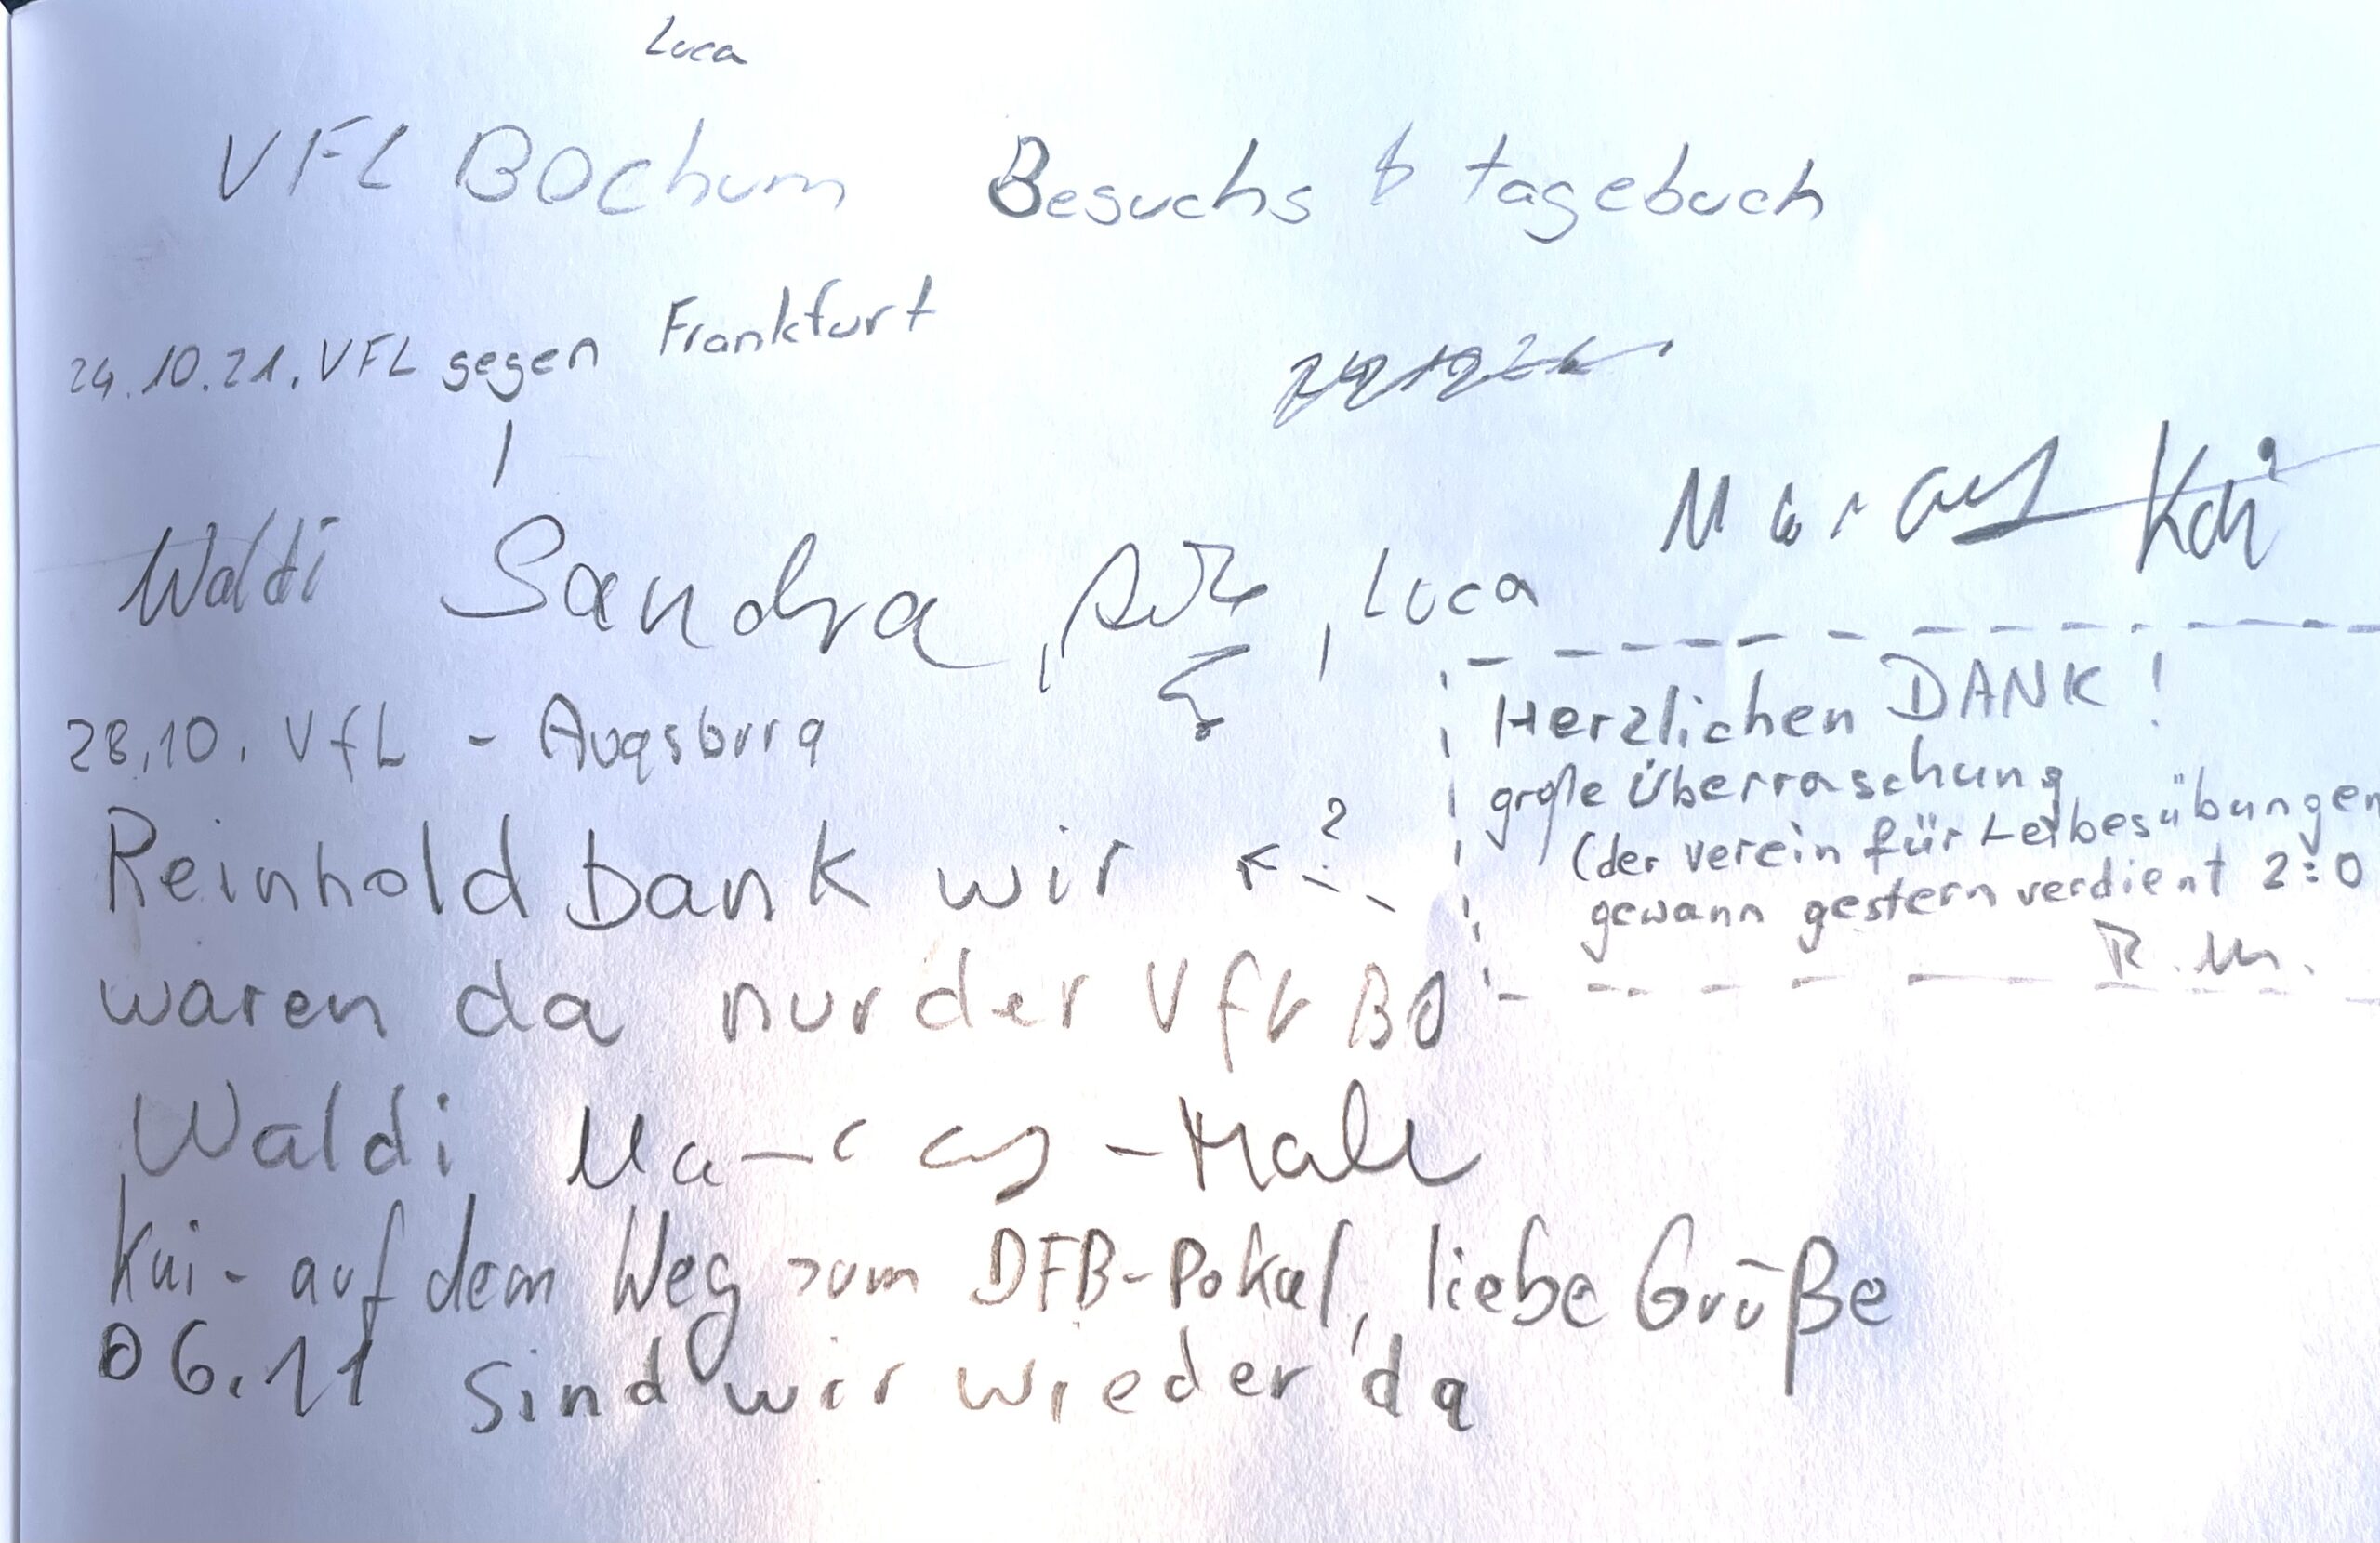 Luca
VFL BOchum Besuchs tagebuch
24.10.21. VFL gegen Frankfurt
Marcus Kai
Waldi Sandra, , Luca
28.10. VfL - Augsburg
Herzlichen DANK!
große Überraschung
(der Verein für Leibesübungen
gewann gestern verdient 2:0
R.M.
Reinhold Dank wir ?
waren da nur der VfL BO
Waldi Marcus -
Kai - auf dem Weg zum DFB-Pokal, liebe Grüße
06.11 sind wir wieder da